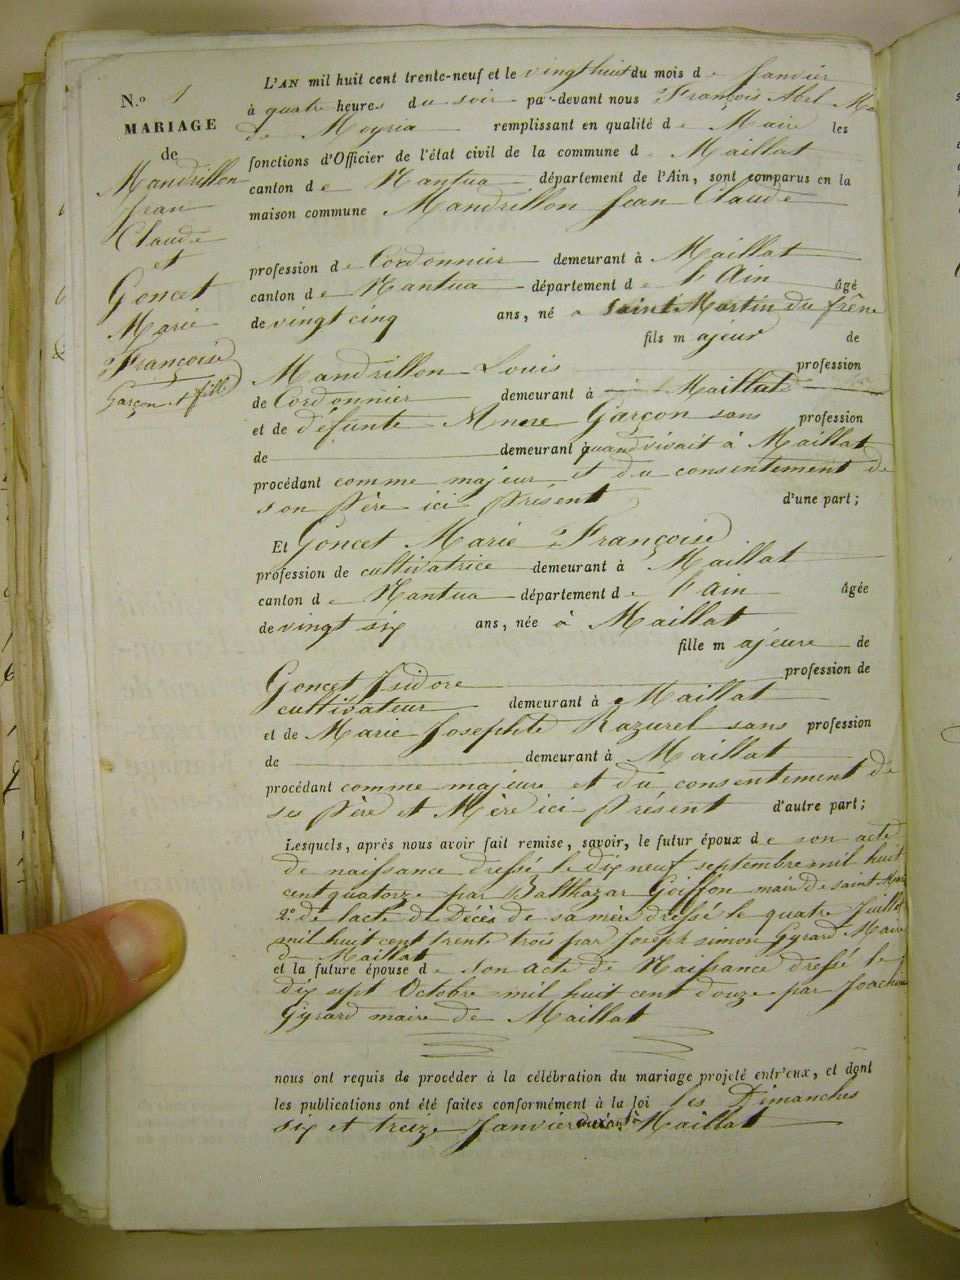 N.o 1
MARIAGE
de
Mandrillon
Jean
Claude
et
Goncet
Marie
Françoise
Garçon et fille
L'AN mil huit cent trente-neuf et le vingt huit du mois de Janvier
à quatre heures du soir par-devant nous François Abel M
de Moyria remplissant en qualité de Maire les
fonctions d'Officier de l'état civil de la commune de Maillat
canton de Nantua département de l'Ain, sont comparus en la
maison commune Mandrillon Jean Claude
profession de Cordonnier demeurant à Maillat
canton de Nantua département de l'Ain âgé
de vingt cinq ans, né à Saint Martin du frêne
fils majeur de
Mandrillon Louis profession
de Cordonnier demeurant à Maillat
et de défunte Anne Garçon sans profession
de demeurant quand vivait à Maillat
procédant comme majeur et du consentement de
son Père ici présent d'une part;
Et Goncet Marie Françoise
profession de cultivatrice demeurant à Maillat
canton de Nantua département de l'Ain âgée
de vingt six ans, née à Maillat
fille majeure de
Goncet Isidore profession de
cultivateur demeurant à Maillat
et de Marie Josephte Razurel sans profession
de demeurant à Maillat
procédant comme majeure et du consentement de
ses Père et Mère ici présent d'autre part;
Lesquels, après nous avoir fait remise, savoir, le futur époux de son acte
de naissance dressé le dix neuf septembre mil huit
cent quatorze par Balthazar Goiffon maire de saint Mar
2.o de lacte de Décès de sa mère dressé le quatre Juillet
mil huit cent trente trois par Joseph simon Gyrard Maire
de Maillat
et la future épouse de son acte de Naissance dressé le
dix sept Octobre mil huit cent douze par Joachim
Gyrard maire de Maillat
nous ont requis de procéder à la célébration du mariage projeté entr'eux, et dont
les publications ont été faites conformément à la loi les Dimanches
six et treize Janvier Maillat